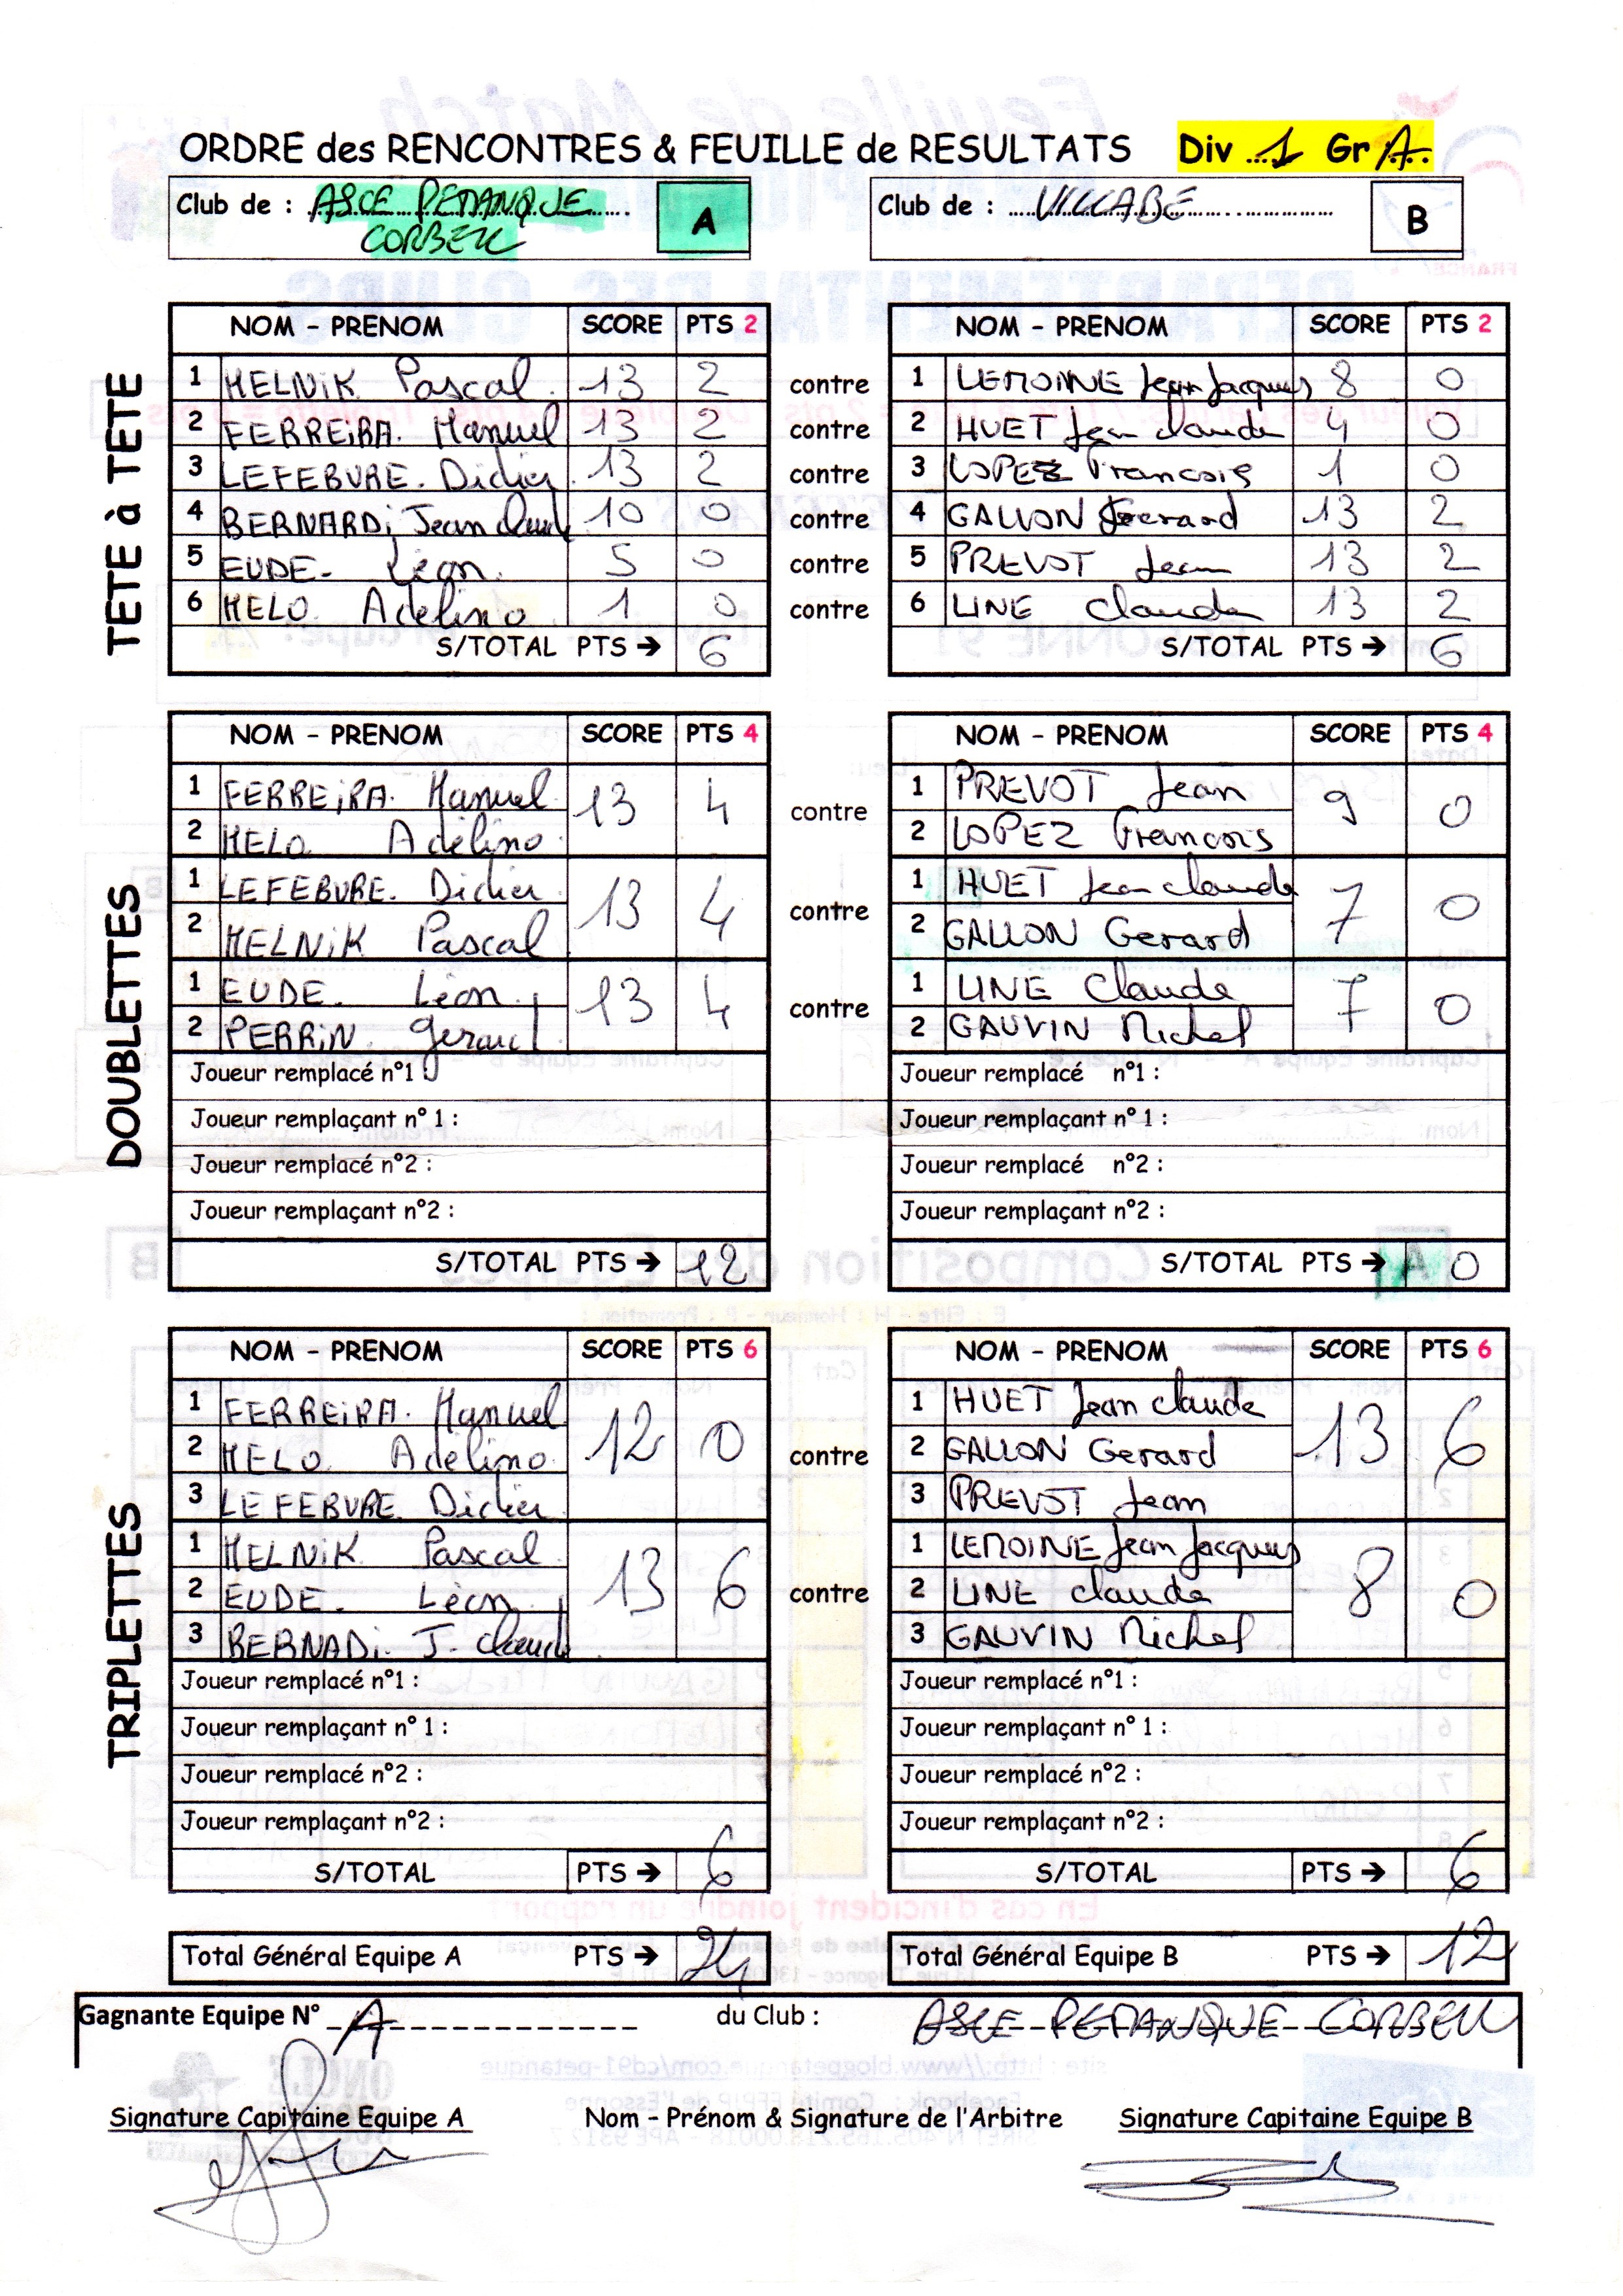 ORDRE des RENCONTRES & FEUILLE de RESULTATS Div 1 Gr A
Club de : ASCE PETANQUE CORBEIL A
Club de : VILLABE B
TETE à TETE
NOM - PRENOM SCORE PTS 2 NOM - PRENOM SCORE PTS 2
1 MELNIK Pascal 13 2 contre 1 LEMOINE Jean Jacques 8 0
2 FERREIRA. Manuel 13 2 contre 2 HUET Jean claude 4 0
3 LEFEBVRE. Didier 13 2 contre 3 LOPEZ Francois 1 0
4 BERNARDi Jean claude 10 0 contre 4 GALLON Gerard 13 2
5 EUDE. Léon. 5 0 contre 5 PREVOT Jean 13 2
6 MELO. Adelino 1 0 contre 6 LINE Claude 13 2
S/TOTAL PTS → 6 S/TOTAL PTS → 6
DOUBLETTES
NOM - PRENOM SCORE PTS 4 NOM - PRENOM SCORE PTS 4
1 FERREiRA. Manuel 13 4 contre 1 PREVOT Jean 9 0
2 MELO Adélino 2 LOPEZ Francois
1 LEFEBVRE. Didier 13 4 contre 1 HUET Jean claude 7 0
2 MELNiK Pascal 2 GALLON Gerard
1 EUDE. Léon 13 4 contre 1 LINE Claude 7 0
2 PERRiN. Gerard 2 GAUVIN Michel
Joueur remplacé n°1 : Joueur remplacé n°1 :
Joueur remplaçant n° 1 : Joueur remplaçant n° 1 :
Joueur remplacé n°2 : Joueur remplacé n°2 :
Joueur remplaçant n°2 : Joueur remplaçant n°2 :
S/TOTAL PTS → 12 S/TOTAL PTS → 0
TRIPLETTES
NOM - PRENOM SCORE PTS 6 NOM - PRENOM SCORE PTS 6
1 FERREiRA. Manuel 12 0 contre 1 HUET Jean claude 13 6
2 MELO. Adélino 2 GALLON Gerard
3 LEFEBVRE. Didier 3 PREVOT Jean
1 MELNiK Pascal 13 6 contre 1 LEMOINE Jean Jacques 8 0
2 EUDE. Léon 2 LINE claude
3 BERNADi. J. claude 3 GAUVIN Michel
Joueur remplacé n°1 : Joueur remplacé n°1 :
Joueur remplaçant n° 1 : Joueur remplaçant n° 1 :
Joueur remplacé n°2 : Joueur remplacé n°2 :
Joueur remplaçant n°2 : Joueur remplaçant n°2 :
S/TOTAL PTS → 6 S/TOTAL PTS → 6
Total Général Equipe A PTS → 24 Total Général Equipe B PTS → 12
Gagnante Equipe N° A du Club : ASCE PETANQUE CORBEIL
Signature Capitaine Equipe A Nom - Prénom & Signature de l'Arbitre Signature Capitaine Equipe B